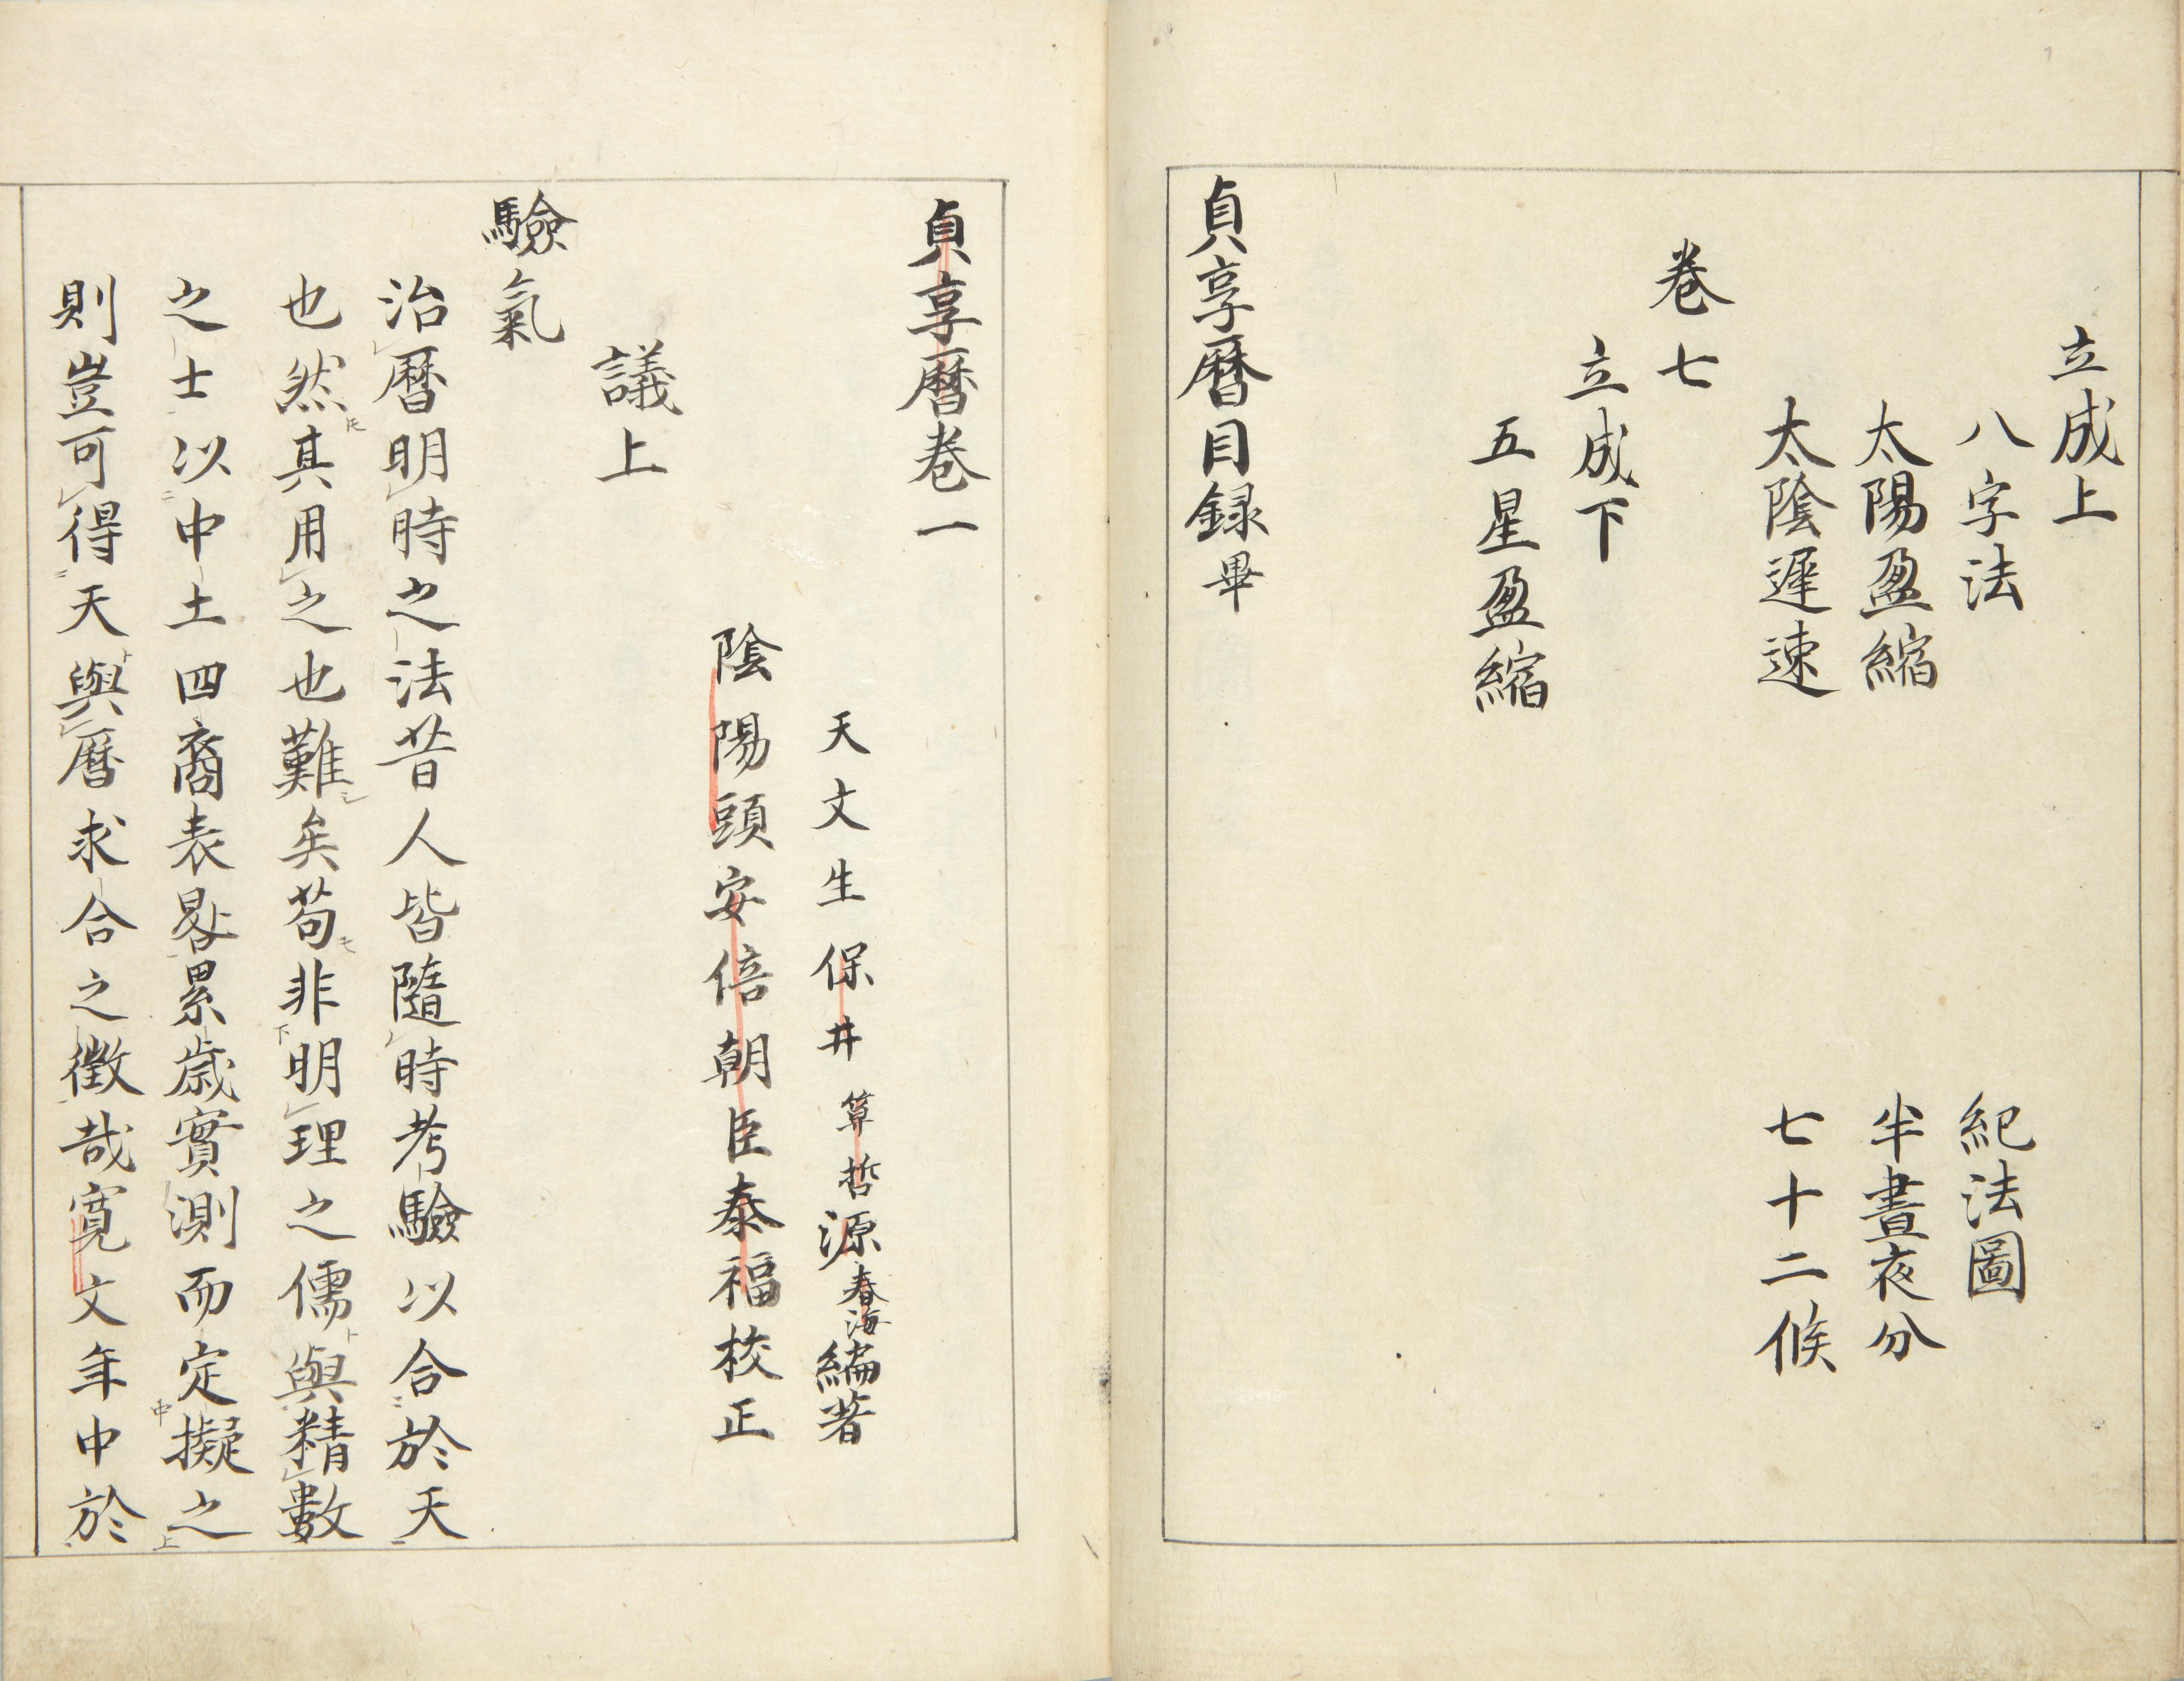 立成上
八字法　紀法圖
太陽盈縮　半晝夜分
太陰遲速　七十二候
卷七
立成下
五星盈縮
貞享暦目録畢
貞享暦卷一
天文生保井算哲源春海編著
陰陽頭安倍朝臣泰福校正
議上
驗氣
治暦明時之法昔人皆隨時考驗以合於天
也然其用之也難矣苟非明理之儒與精數
之士以中土四裔表晷累歳實測而定擬之
則豈可得天與暦求合之徴哉寛文年中於